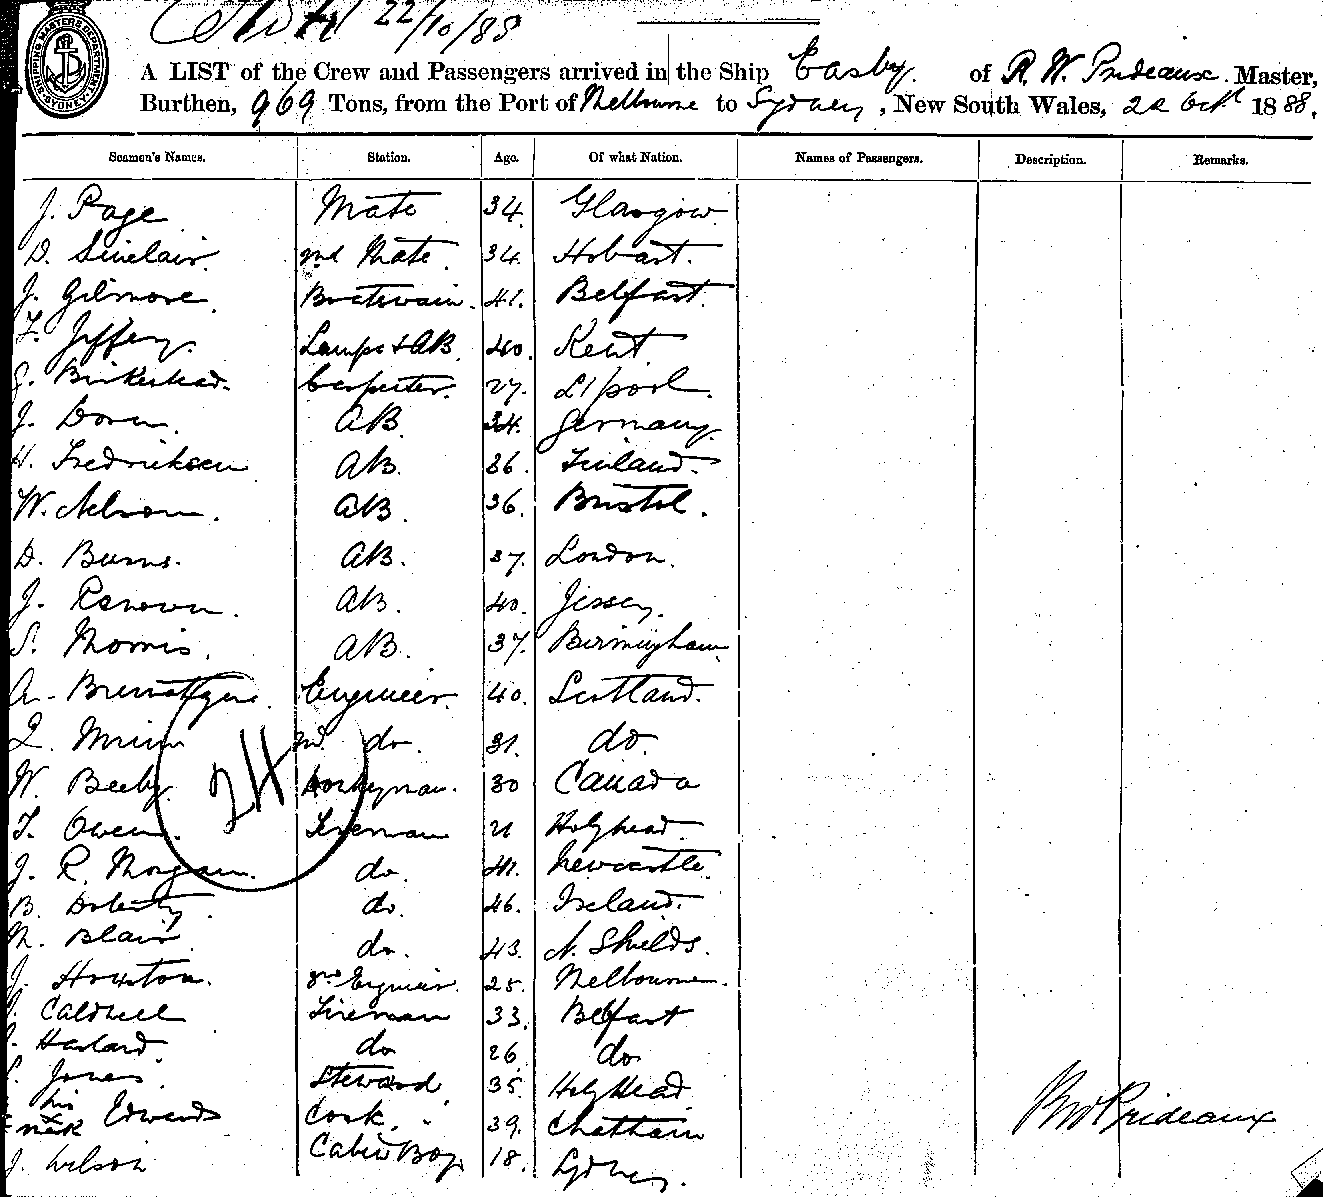 22/10/88
SHIPPING MASTERS DEPARTMENT SYDNEY
A LIST of the Crew and Passengers arrived in the Ship Easby. of R. W. Prideaux. Master,
Burthen, 969 Tons, from the Port of Melbourne to Sydney, New South Wales, 22 Oct 1888.
Seamen's Names. Station. Age. Of what Nation. Names of Passengers. Description. Remarks.
J. Page Mate 34. Glasgow.
D. Sinclair. 2nd Mate. 34. Hobart.
J. Gilmore. Boatswain. 41. Belfast.
F. Jeffery. Lamps & AB. 40. Kent.
J. Birkenhead. Carpenter. 27. L'pool.
J. Doren. AB. 34. Germany.
H. Fredriksen AB. 26. Finland.
W. Nelson. AB. 36. Bristol.
D. Burns. AB. 37. London.
J. Renown. AB. 40. Jersey.
S. Morris. AB. 37. Birmingham.
A. Engineer. 40. Scotland.
2nd do. 31. do.
W. Beeby. 24 Donkeyman. 30 Canada
T. Owen. Fireman 21 Holyhead.
J. R. Morgan. do. 41. Newcastle.
B. Doherty. do. 46. Ireland.
M. Blair do. 43. N. Shields.
J. Houston. 3rd Engineer. 25. Melbourne.
Caldwell Fireman 33. Belfast
Harland. do 26 do
Jones. Steward. 35. Holyhead
his x mark Edwards Cook. 39. Chatham
J. Wilson Cabin Boy 18. Sydney.
RW Prideaux